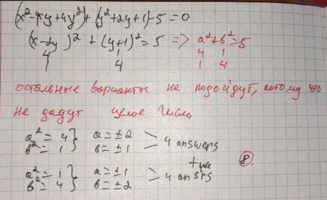 (x²-4xy+4y²)+(y²+2y+1)-5=0
(x-2y)²+(y+1)²=5 => a²+b²=5
4 1 4 1
1 4 1 4
остальные варианты не подойдут, потому что
не дадут целое число
a²=4} a=±2
b²=1} b=±1 > 4 answers
+
a²=1} a=±1
b²=4} b=±2 > 4 ans
8.